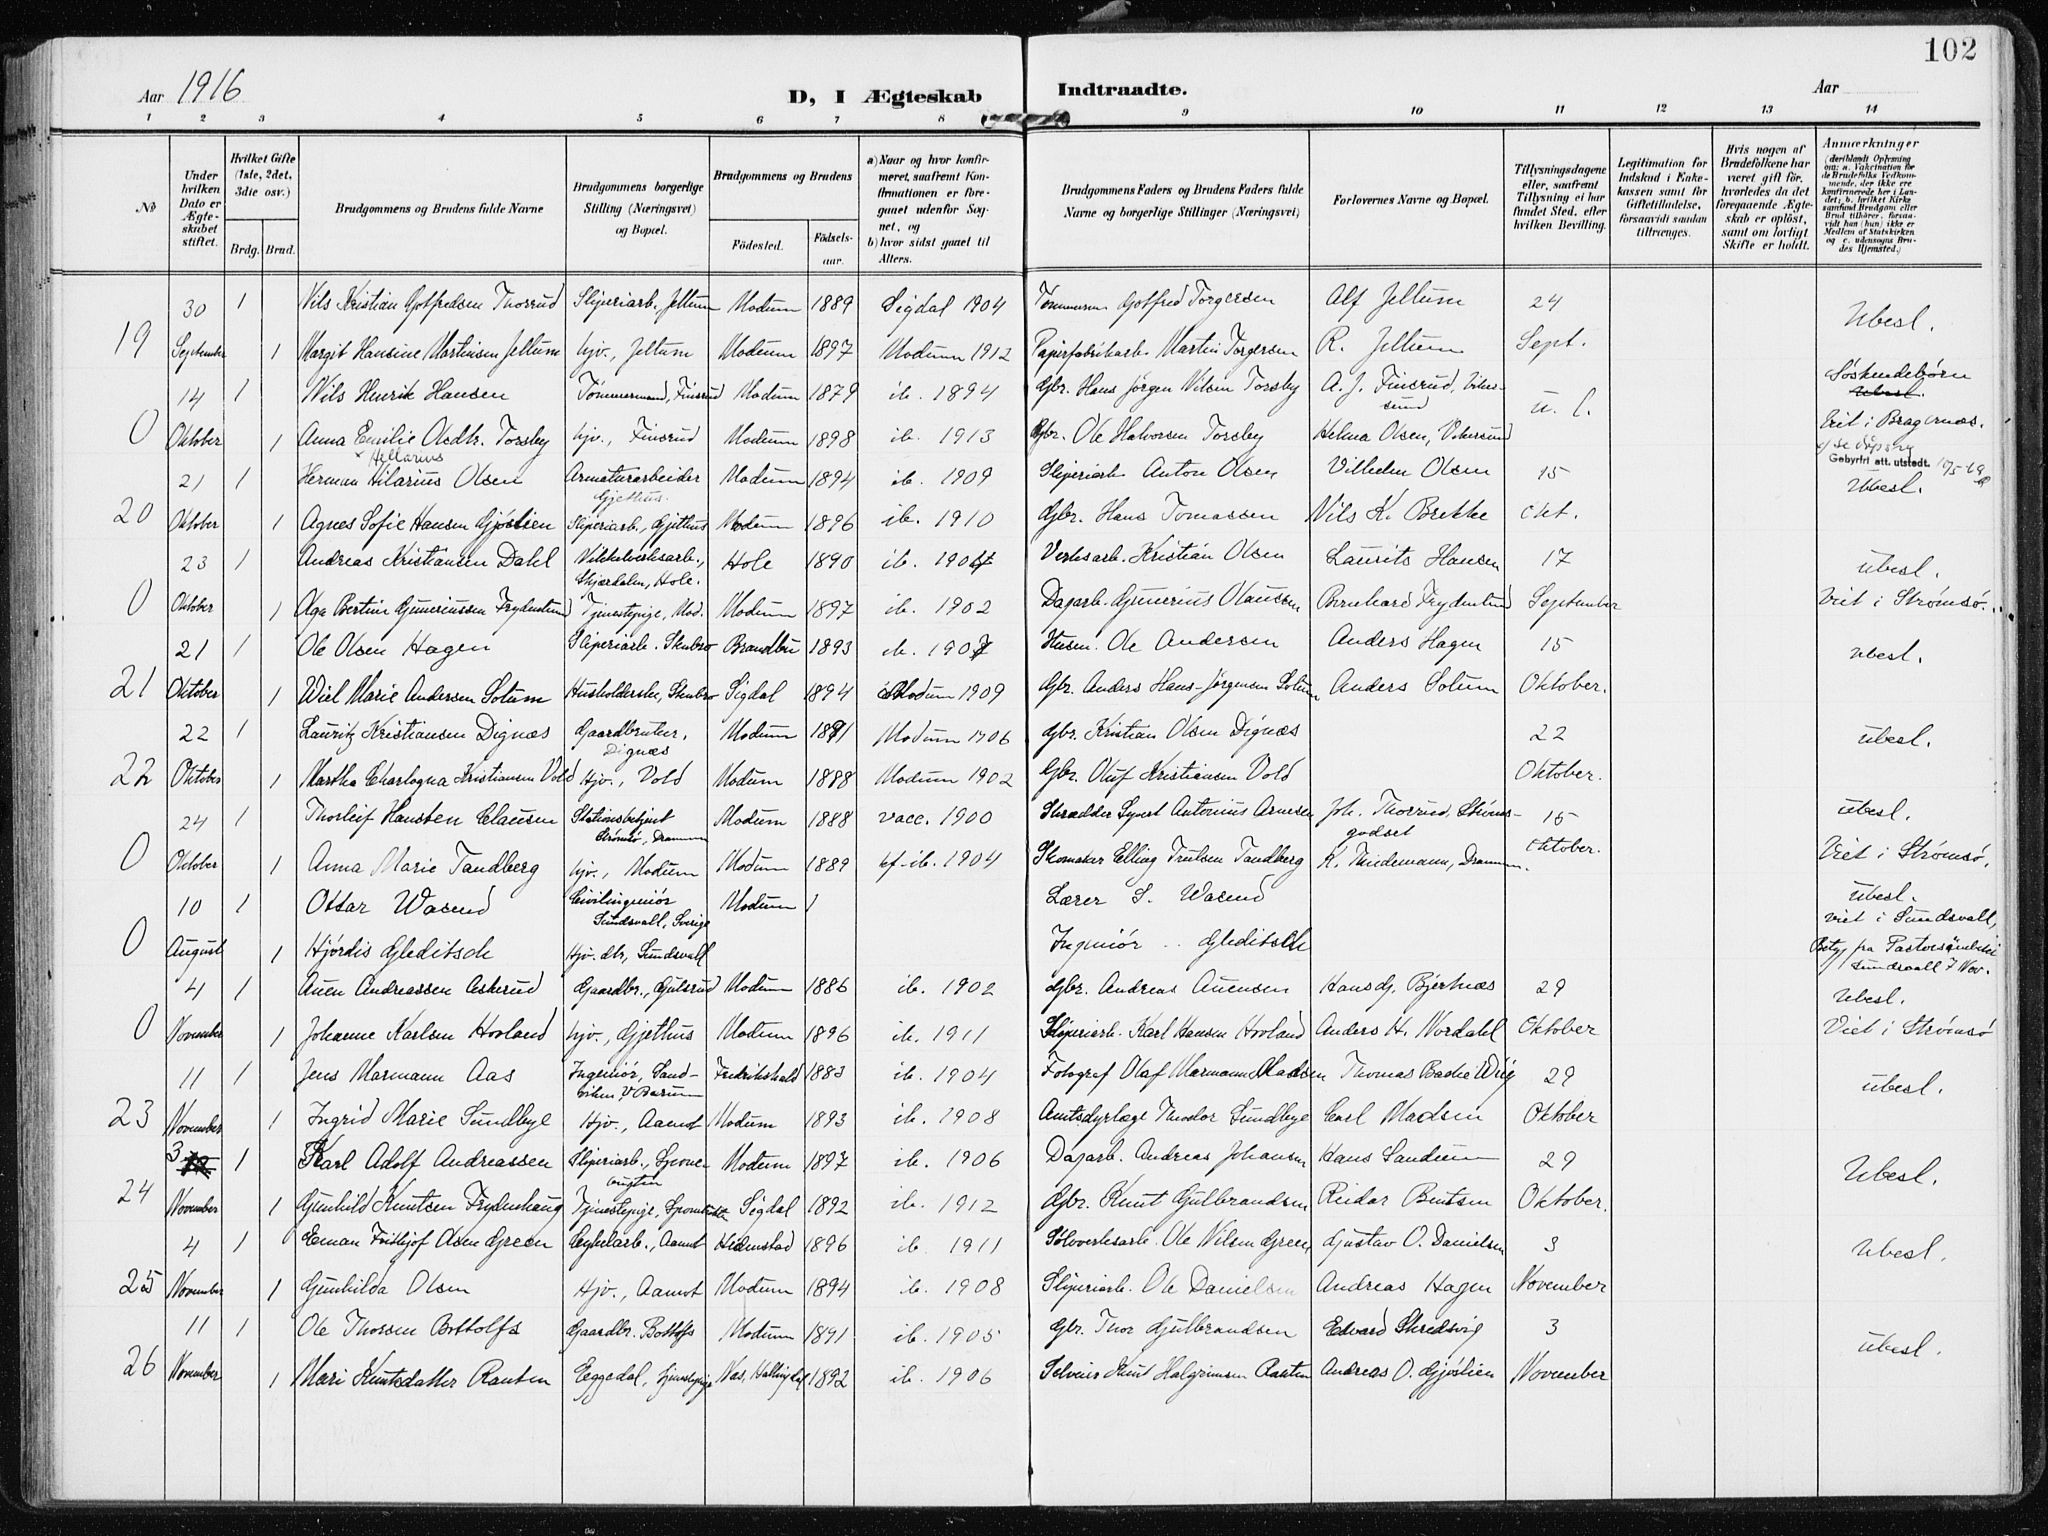 102
Aar 1916
D, I Ægteskab Indtraadte.
Aar
1 2 3 4 5 6 7 8 9 10 11 12 13 14
No
Under hvilken Dato er Ægteskabet stiftet.
Hvilket Gifte (1ste, 2det, 3die osv.)
Brdg. Brud.
Brudgommens og Brudens fulde Navne
Brudgommens borgerlige Stilling (Næringsvei) og Bopæl.
Brudgommens og Brudens
Födested. Födsels-aar.
a) Naar og hvor konfirmeret, saafremt Konfirmationen er foregaaet udenfor Sognet, og
b) hvor sidst gaaet til Alters.
Brudgommens Faders og Brudens Faders fulde Navne og borgerlige Stillinger (Næringsvei)
Forlovernes Navne og Bopæl.
Tillysningsdagene eller, saafremt Tillysning ei har fundet Sted, efter hvilken Bevilling.
Legitimation for Indskud i Enkekassen samt for Giftetilladelse, forsaavidt saadan tiltrænges.
Hvis nogen af Brudefolkene har været gift för, hvorledes da det foregaaende Ægteskab er oplöst, samt om lovligt Skifte er holdt.
Anmærkninger
30 1 Nils Kristian Gotfredsen Thorrud Sliperiarb. Jellum Modum 1889 Sigdal 1904 Gotfred Torgersen Alf Jellum 24 Ubesl.
19 September 1 Margit Hansine Martinsen Jellum hjv., Jellum Modum 1897 Modum 1912 Papirfabrikarb. Martin Torgersen R. Jellum Sept.
14 1 Nils Henrik Hansen Tömmermand, Finsrud Modum 1879 ib. 1894 Gbr. Hans Jörgen Nilsen Torsby A. J. Finsrud, Vikersund u. l. Söskendebörn Ubesl.
0 Oktober 1 Anna Emilie Olsdtr. Torsby hjv., Finsrud Modum 1898 ib. 1913 Gbr. Ole Halvorsen Torsby Helma Olsen, Vikersund Viet i Bragernæs.
x Hellarius
Gebyrfri att. utstedt.
21 1 Herman Hilarius Olsen Armaturarbeider Gjethus. Modum 1894 ib. 1909 Sliperiarb. Anton Olsen Vilhelm Olsen 15 Ubesl.
20 Oktober 1 Agnes Sofie Hansen Gjöslien Sliperiarb., Gjethus Modum 1896 ib. 1910 Gbr. Hans Tomassen Nils K. Brekke Okt.
23 1 Andreas Kristiansen Dahl Nikkelverksarb., Skjærdalen, Hole. Hole 1890 ib. 1904 Verksarb. Kristian Olsen Laurits Hansen 17 ubesl.
0 Oktober 1 Aga Bertine Guneriussen Frydenlund Tjenestepige, Mod. Modum 1897 ib. 1902 Dagarb. Gunerius Olaussen Bernhard Frydenlund September Viet i Strömsö.
21 1 Ole Olsen Hagen Sliperiarb. Skubro Brandbu 1893 ib. 1907 Husm. Ole Andersen Anders Hagen 15 ubesl.
21 Oktober 1 Wiel Marie Andersen Solum Husholderske, Skubro Sigdal 1894 Modum 1909 Gbr. Anders Hans-Jörgensen Solum Anders Solum Oktober.
22 1 Lauritz Kristiansen Dignæs Gaardbruker, Dignæs Modum 1891 Modum 1906 Gbr. Kristian Olsen Dignæs 22 ubesl.
22 Oktober 1 Martha Charlogna Kristiansen Vold Hjv., Vold Modum 1888 Modum 1902 Gbr. Oluf Kristiansen Vold Oktober.
24 1 Thorleif Hansten Clausen Stationsbetjent Strömsö, Drammen Modum 1888 vacc. 1900 Skrædder Syvert Antonius Arnesen Joh. Thorrud, Strömsgodset 15 ubesl.
0 Oktober 1 Anna Marie Tandberg hjv., Modum Modum 1889 kf. ib. 1904 Skomaker Elling Trulsen Tandberg K. Thidemann, Drammen. Oktober. Viet i Strömsö.
10 1 Ottar Wasend Civilingeniör Sundsvall, Sverige Modum Lærer S. Wasend ubesl. viet i Sundsvall,
0 August 1 Hjördis Gleditsch Hjv. dtr, Sundsvall Ingeniör .. Gleditsch Betyg fra Pastorsämbetet Sundsvall 7 Nov.
4 1 Auen Andreassen Askerud Gaardbr., Gulsrud Modum 1886 ib. 1902 Gbr. Andreas Auensen Hans G. Bjerknæs 29 Ubesl.
0 November 1 Johanne Karlsen Hovland hjv., Gjethus Modum 1896 ib. 1911 Sliperiarb. Karl Hansen Hovland Anders H. Nordahl Oktober Viet i Strömsö
11 1 Jens Marmann Aas Ingeniör, Sandviken, V. Bærum Fredrikshald 1883 ib. 1904 Fotograf Olaf Marmann Madsen Thomas Bache Wiig 29 ubesl.
23 November 1 Ingrid Marie Sundbye Hjv., Aamot Modum 1893 ib. 1908 Amtsdyrlæge Theodor Sundbye Carl Madsen Oktober
3 1 Karl Adolf Andreassen Sliperiarb., Modum 1897 ib. 1906 Dagarb. Andreas Johansen Hans Sandum 29 Ubesl.
24 November 1 Gunhild Knutsen Frydenhaug Tjenestepige, Sigdal 1892 ib. 1912 Gbr. Knut Gulbrandsen Reidar Bentsen Oktober.
4 1 Eman Frithjof Olsen Green Cykelarb., Aamot Hiemstad 1896 ib. 1911 Sölvverksarb. Ole Nilsen Green, Gustav O. Danielsen 3 Ubesl.
25 November 1 Gunhilda Olsen Hjv., Aamot Modum 1894 ib. 1908 Sliperiarb. Ole Danielsen Andreas Hagen November
11 1 Ole Thorsen Bottolfs Gaardbr. Bottolfs Modum 1891 ib. 1905 Gbr. Thor Gulbrandsen Edvard Skredsvig 3 ubesl.
26 November 1 Mari Knutsdatter Rauten Eggedal, tjenestepige Nas, Hallingdal 1892 ib. 1906 Selveier Knut Halgrimsen Rauten Andreas O. Gjöslien November